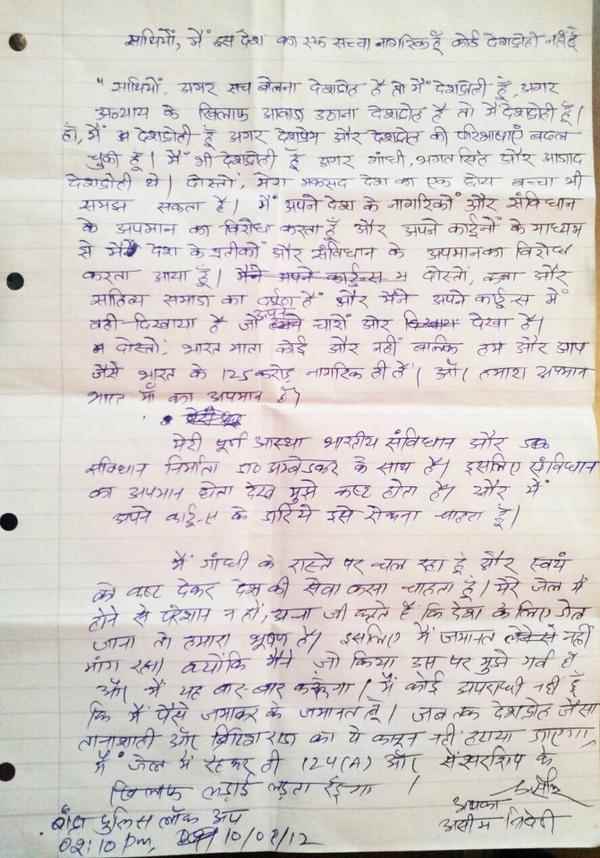 साथियों, मैं इस देश का एक सच्चा नागरिक हूँ कोई देशद्रोही नहीं हूँ
"साथियों, अगर सच बोलना देशद्रोह है तो मैं देशद्रोही हूँ, अगर
अन्याय के खिलाफ आवाज उठाना देशद्रोह है तो मैं देशद्रोही हूँ।
हाँ, मैं देशद्रोही हूँ अगर देशप्रेम और देशद्रोह की परिभाषाएँ बदल
चुकी हैं। मैं भी देशद्रोही हूँ अगर गांधी, भगत सिंह और आजाद
देशद्रोही थे। दोस्तों, मेरा मकसद देश का एक छोटा बच्चा भी
समझ सकता है। मैं अपने देश के नागरिकों और संविधान
के अपमान का विरोध करता हूँ और अपने कार्टूनों के माध्यम
से मैं देश के प्रतीकों और संविधान के अपमान का विरोध
करता आया हूँ। मैंने अपने कार्टून्स म दोस्तों, कला और
साहित्य समाज का दर्पण है और मैंने अपने कार्टून्स में
वही दिखाया है जो अपने चारों ओर देखा है।
दोस्तों, भारत माता कोई और नहीं बल्कि हम और आप
जैसे भारत के 125 करोड़ नागरिक ही हैं। और हमारा अपमान
भारत माँ का अपमान है।
मेरी पूर्ण आस्था भारतीय संविधान और
संविधान निर्माता डा० अम्बेडकर के साथ है। इसलिए संविधान
का अपमान होता देख मुझे कष्ट होता है। और मैं
अपने कार्टून्स के जरिये इसे रोकना चाहता हूँ।
मैं गांधी के रास्ते पर चल रहा हूँ और स्वयं
को कष्ट देकर देश की सेवा करना चाहता हूँ। मेरे जेल में
होने से परेशान न हों, अन्ना जी कहते हैं कि देश के लिए जेल
जाना तो हमारा भूषण है। इसलिए मैं जमानत नहीं
मांग रहा। क्योंकि मैंने जो किया उस पर मुझे गर्व है
और मैं यह बार-बार करूंगा। मैं कोई अपराधी नहीं हूँ
कि मैं पैसे जमाकर के जमानत लूँ। जब तक देशद्रोह जैसा
तानाशाही और ब्रिटिश राज का ये कानून नहीं हटाया जाएगा,
मैं जेल में रहकर ही 124(A) और सेंसरशिप के
खिलाफ लड़ाई लड़ता रहूंगा।
आपका
असीम त्रिवेदी
पुलिस लॉक अप
02:10 PM,